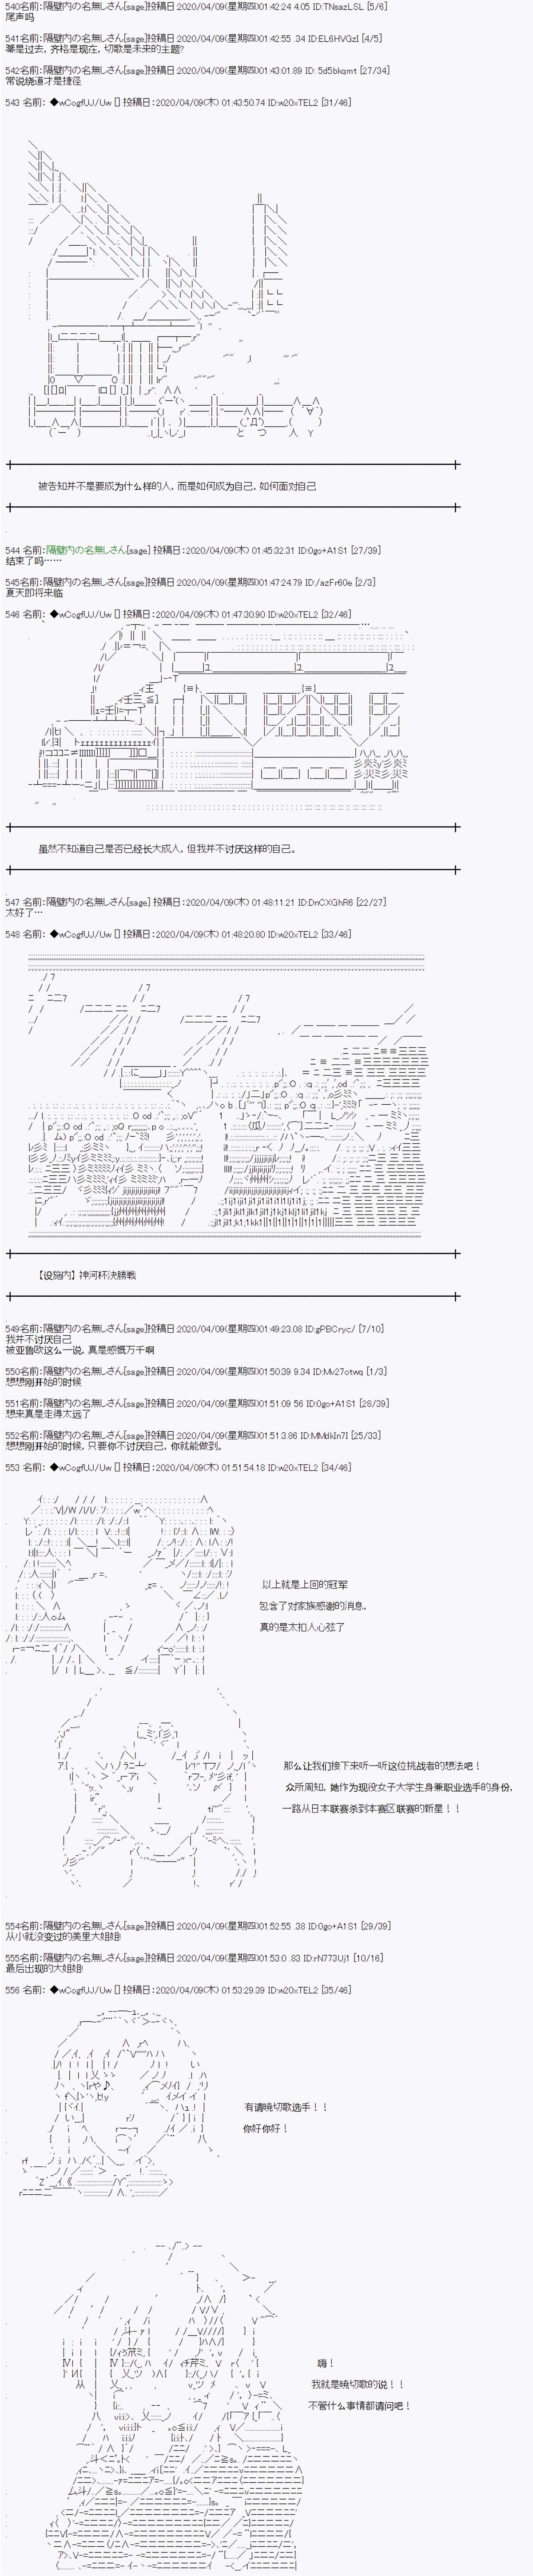 540名前:隔壁内の名無しさん[sage]投稿日:2020/04/09(星期四)01:42:24 4.05 ID:TNsazLSL [5/6]
尾声吗
541名前:隔壁内の名無しさん[sage]投稿日:2020/04/09(星期四)01:42:55 .34 ID:EL6HVGzI [4/5]
幕是过去, 齐格是现在, 切歌是未来的主题?
542名前:隔壁内の名無しさん[sage]投稿日:2020/04/09(星期四)01:43:01.89 ID: 5d5bkqmt [27/34]
常说绕道才是捷径
543 名前: ◆wCogfUJ/Uw [] 投稿日:2020/04/09(木) 01:43:50.74 ID:w20xTEL2 [31/46]
と つ 人 Y
被告知并不是要成为什么样的人, 而是如何成为自己, 如何面对自己
544 名前:隔壁内の名無しさん[sage] 投稿日:2020/04/09(木) 01:45:32.31 ID:0go+A1S1 [27/39]
结束了吗……
545名前:隔壁内の名無しさん[sage]投稿日:2020/04/09(星期四)01:47:24.79 ID:/azFr60e [2/3]
夏天即将来临
546 名前: ◆wCogfUJ/Uw [] 投稿日:2020/04/09(木) 01:47:30.90 ID:w20xTEL2 [32/46]
虽然不知道自己是否已经长大成人, 但我并不讨厌这样的自己。
547 名前:隔壁内の名無しさん[sage] 投稿日:2020/04/09(木) 01:48:11.21 ID:DnCXGhR6 [22/27]
太好了…
548 名前: ◆wCogfUJ/Uw [] 投稿日:2020/04/09(木) 01:48:20.80 ID:w20xTEL2 [33/46]
【设施内】神河杯決勝戦
549名前:隔壁内の名無しさん[sage]投稿日:2020/04/09(星期四)01:49:23.08 ID:gPBCryc/ [7/10]
我并不讨厌自己
被亚鲁欧这么一说, 真是感慨万千啊
550名前:隔壁内の名無しさん[sage]投稿日:2020/04/09(星期四)01:50:39 9.34 ID:Mv27otwq [1/3]
想想刚开始的时候
551名前:隔壁内の名無しさん[sage]投稿日:2020/04/09(星期四)01:51:09 56 ID:0go+A1S1 [28/39]
想来真是走得太远了
552名前:隔壁内の名無しさん[sage]投稿日:2020/04/09(星期四)01:51:3.86 ID:MMdkIn7I [25/33]
想想刚开始的时候, 只要你不讨厌自己, 你就能做到。
553 名前: ◆wCogfUJ/Uw [] 投稿日:2020/04/09(木) 01:51:54.18 ID:w20xTEL2 [34/46]
以上就是上回的冠军
包含了对家族感谢的消息。
真的是太扣人心弦了
那么让我们接下来听一听这位挑战者的想法吧!
众所周知, 她作为现役女子大学生身兼职业选手的身份,
一路从日本联赛杀到本赛区联赛的新星!!
554名前:隔壁内の名無しさん[sage]投稿日:2020/04/09(星期四)01:52:55 .38 ID:0go+A1S1 [29/39]
从小就没变过的美里大姐姐!
555名前:隔壁内の名無しさん[sage]投稿日:2020/04/09(星期四)01:53:0 .83 ID:rN773Uj1 [10/16]
最后出现的大姐姐!
556 名前: ◆wCogfUJ/Uw [] 投稿日:2020/04/09(木) 01:53:29.39 ID:w20xTEL2 [35/46]
有请曉切歌选手!!
你好你好!
嗨!
我就是曉切歌的说!!
不管什么事情都请问吧!